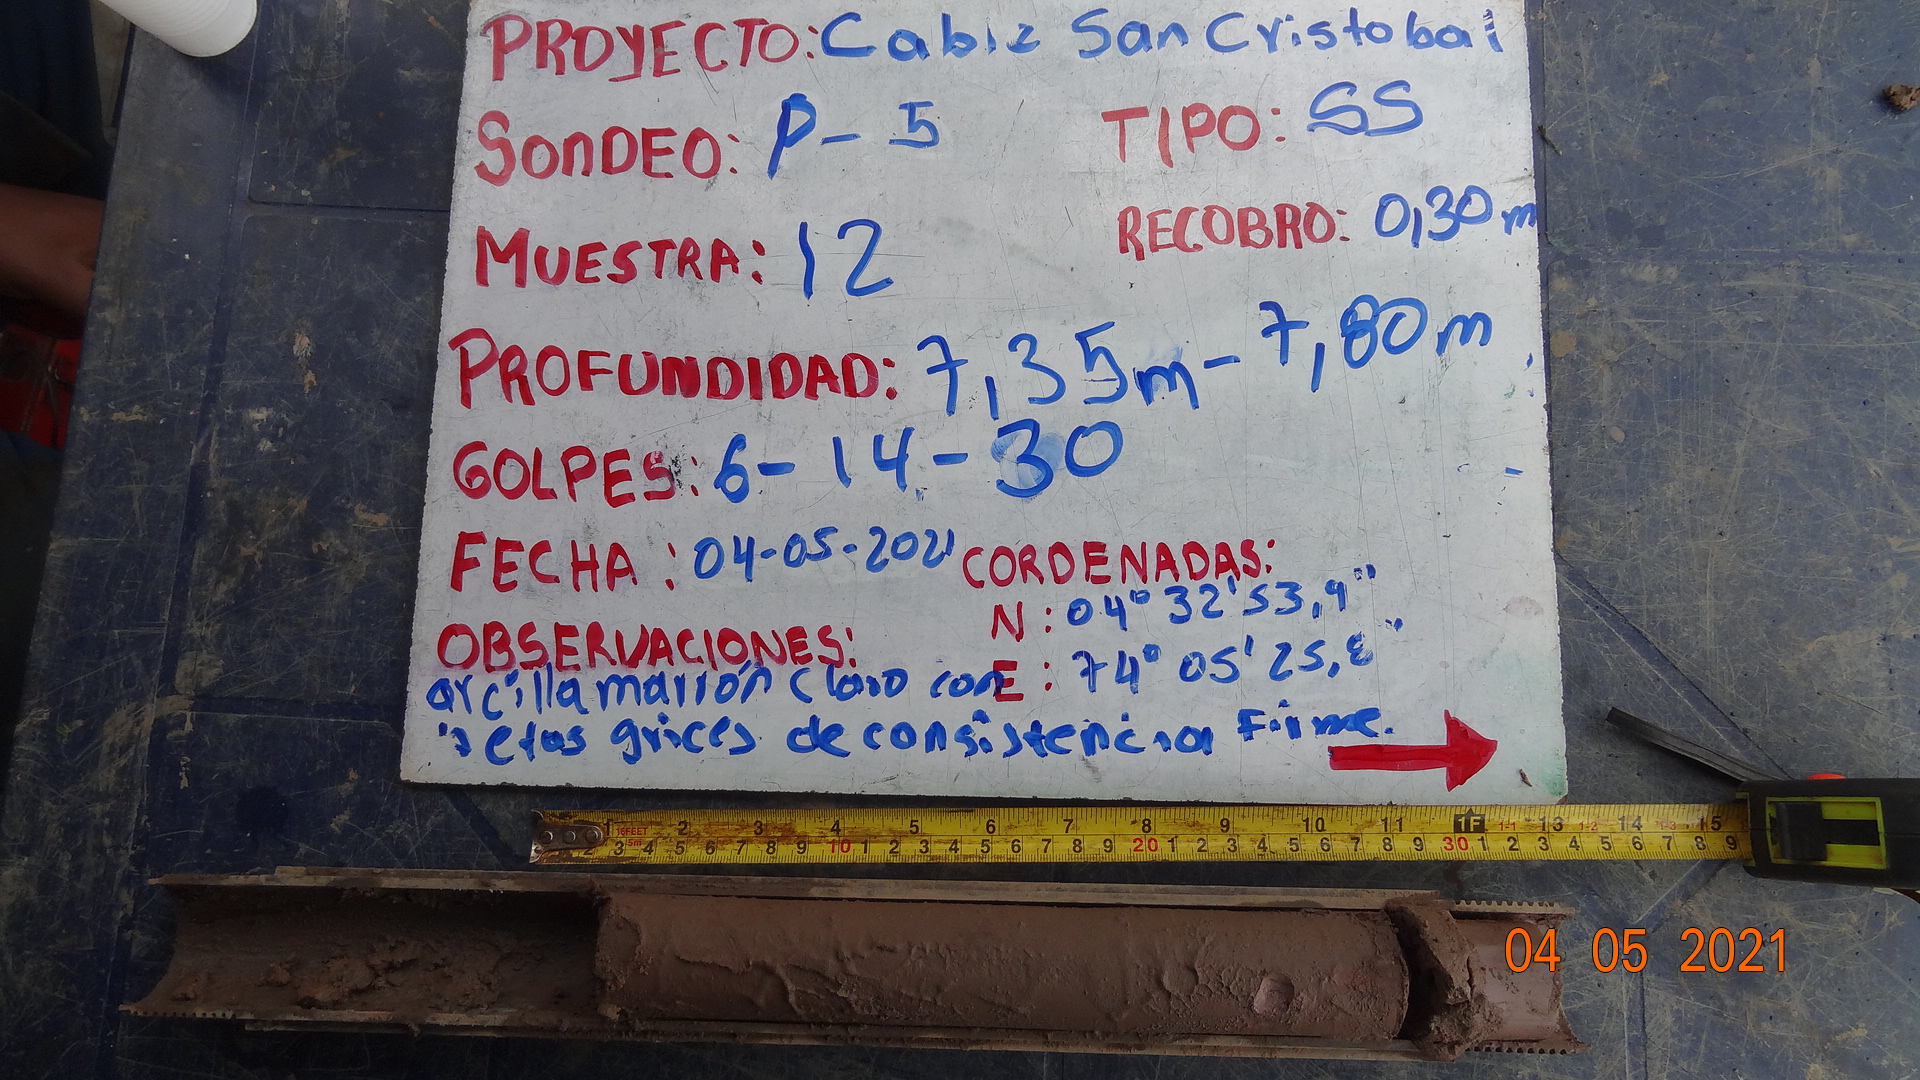 PROYECTO: Cable San Cristobal
SONDEO: P-5 TIPO: SS
MUESTRA: 12 RECOBRO: 0,30 m
PROFUNDIDAD: 7,35m - 7,80m
GOLPES: 6-14-30
FECHA: 04-05-2021 CORDENADAS:
N: 04° 32' 53,9"
OBSERVACIONES: E: 74° 05' 25,8"
arcilla marrón claro con
vetas grices de consistencia Firme.
1 16FEET 2 3 4 5 6 7 8 9 10 11 1F 1-1 13 1-2 14 1-3 15
2 3 5m 4 5 6 7 8 9 10 1 2 3 4 5 6 7 8 9 20 1 2 3 4 5 6 7 8 9 30 1 2 3 4 5 6 7 8 9
04 05 2021